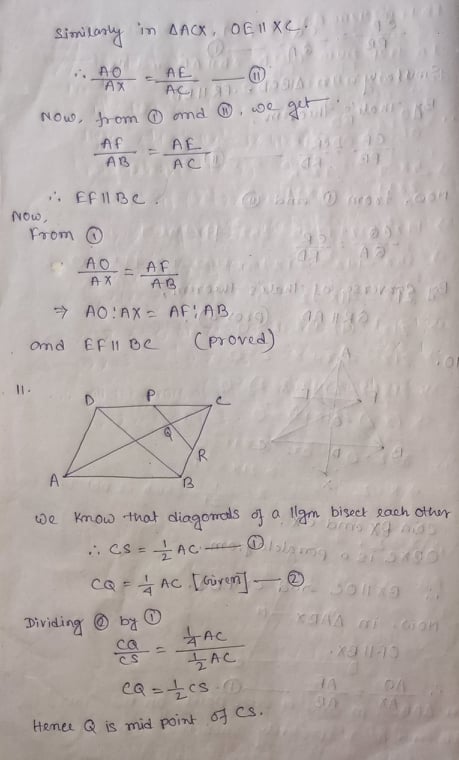 Similarly in ΔACX, OE || XC.
∴ AO/AX = AE/AC — (ii)
Now, from (i) and (ii), we get
AF/AB = AE/AC
∴ EF || BC.
Now,
From (i)
AO/AX = AF/AB
⇒ AO : AX = AF : AB
and EF || BC (proved)
11.
D P C
Q
R
A B
We know that diagonals of a ||gm bisect each other
∴ CS = 1/2 AC — (1)
CQ = 1/4 AC [Given] — (2)
Dividing (2) by (1)
CQ/CS = 1/4 AC / 1/2 AC
CQ = 1/2 CS
Hence Q is mid point of CS.